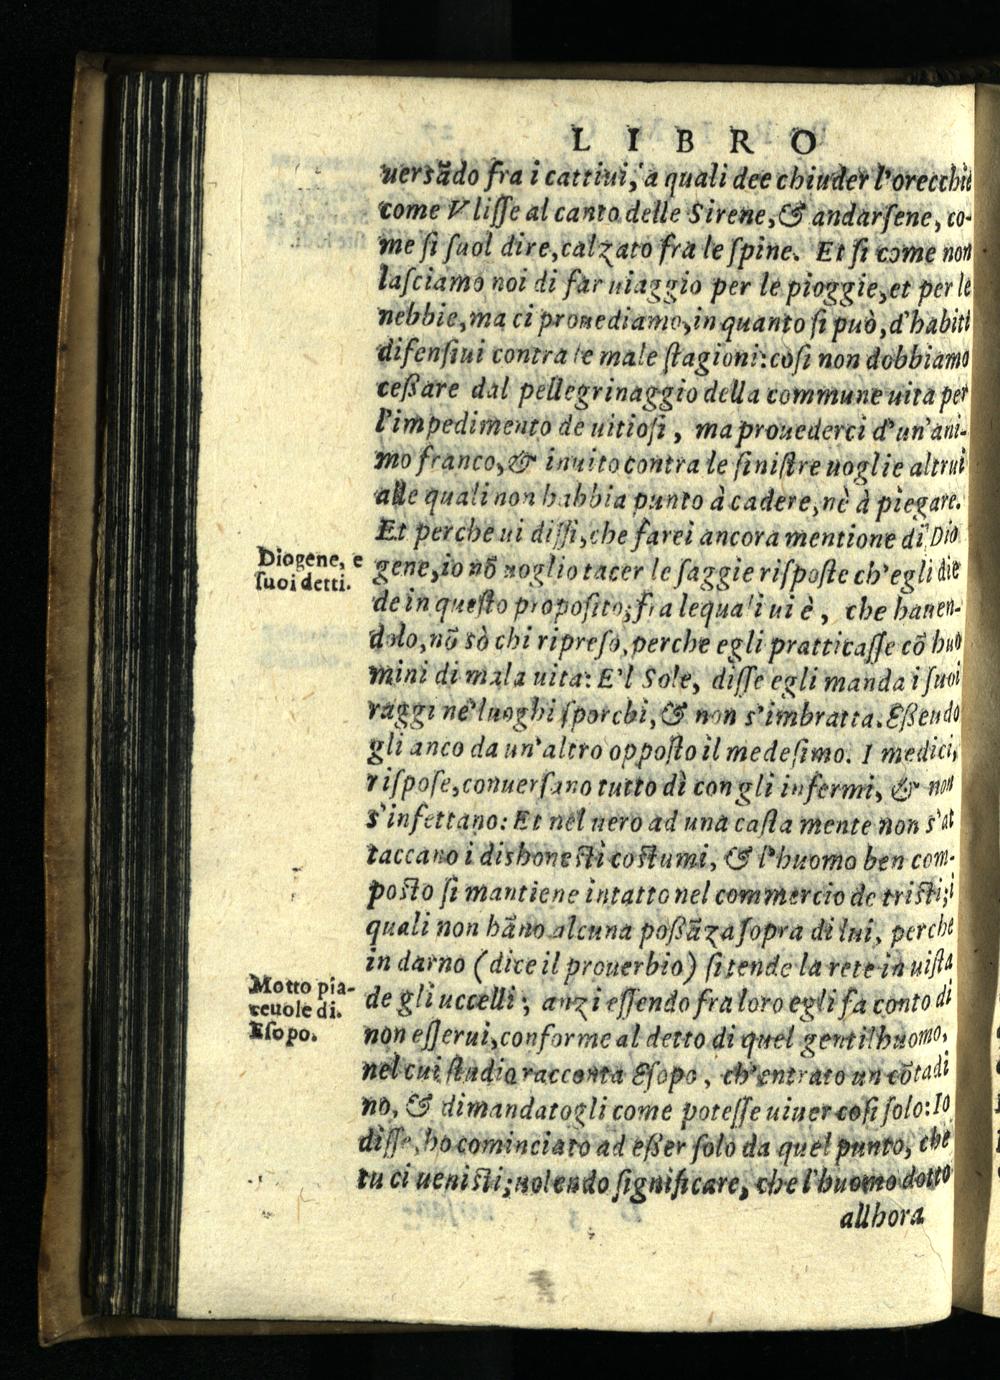 LIBRO
uersādo fra i cattiui, a quali dee chiuder l'orecchie
come Vlisse al canto delle Sirene, & andarsene, co-
me si suol dire, calzato fra le spine. Et si come non
lasciamo noi di far uiaggio per le pioggie, et per le
nebbie, ma ci prouediamo, in quanto si può, d'habiti
difensiui contra le male stagioni: cosi non dobbiamo
ceßare dal pellegrinaggio della commune uita per
l'impedimento de uitiosi, ma prouederci d'un'ani-
mo franco, & inuito contra le sinistre uoglie altrui
alle quali non habbia punto à cadere, nè à piegare.
Et perche ui dissi, che farei ancora mentione di Dio
Diogene, e
suoi detti.
gene, io nō uoglio tacer le saggie risposte ch'egli die
de in questo proposito; fra lequali ui è, che hauen-
dolo, nō sò chi ripreso, perche egli pratticasse cō huo
mini di mala uita: E'l Sole, disse egli manda i suoi
raggi ne' luoghi sporchi, & non s'imbratta. Eßendo
gli anco da un'altro opposto il medesimo. I medici,
rispose, conuersano tutto dì con gli infermi, & non
s'infettano: Et nel uero ad una casta mente non s'at
taccano i dishonesti costumi, & l'huomo ben com-
posto si mantiene intatto nel commercio de tristi; i
quali non hāno alcuna poßāza sopra di lui, perche
in darno (dice il prouerbio) si tende la rete in uista
Motto pia-
ceuole di.
Esopo.
de gli uccelli; anzi essendo fra loro egli fa conto di
non esserui, conforme al detto di quel gentilhuomo,
nel cui studio racconta Esopo, ch'entrato un cōtadi
no, & dimandatogli come potesse uiuer cosi solo: Io
disse, ho cominciato ad eßer solo da quel punto, che
tu ci uenisti; uolendo significare, che l'huomo dotto
allhora